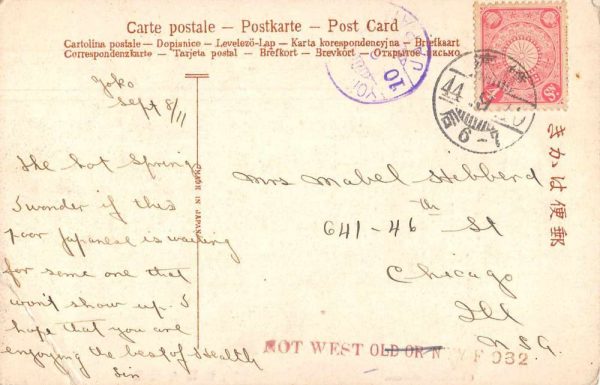 Carte postale – Postkarte – Post Card
Cartolina postale – Dopisnico – Levelező-Lap – Karta korespondencyjna – Briefkaart
Correspondenzkarte – Tarjeta postal – Brefkort – Brevkort – Открытое письмо
Yoko
Sept 8/11
The hot Spring
I wonder if this
poor Japanese is waiting
for some one that
won't show up. I
hope that you are
enjoying the best of Health
MADE IN JAPAN
Mrs Mabel Hebberd
641-46 th St
Chicago
Ill
USA
10
44
6-7
きかは便郵
NOT WEST OLD OR N
032